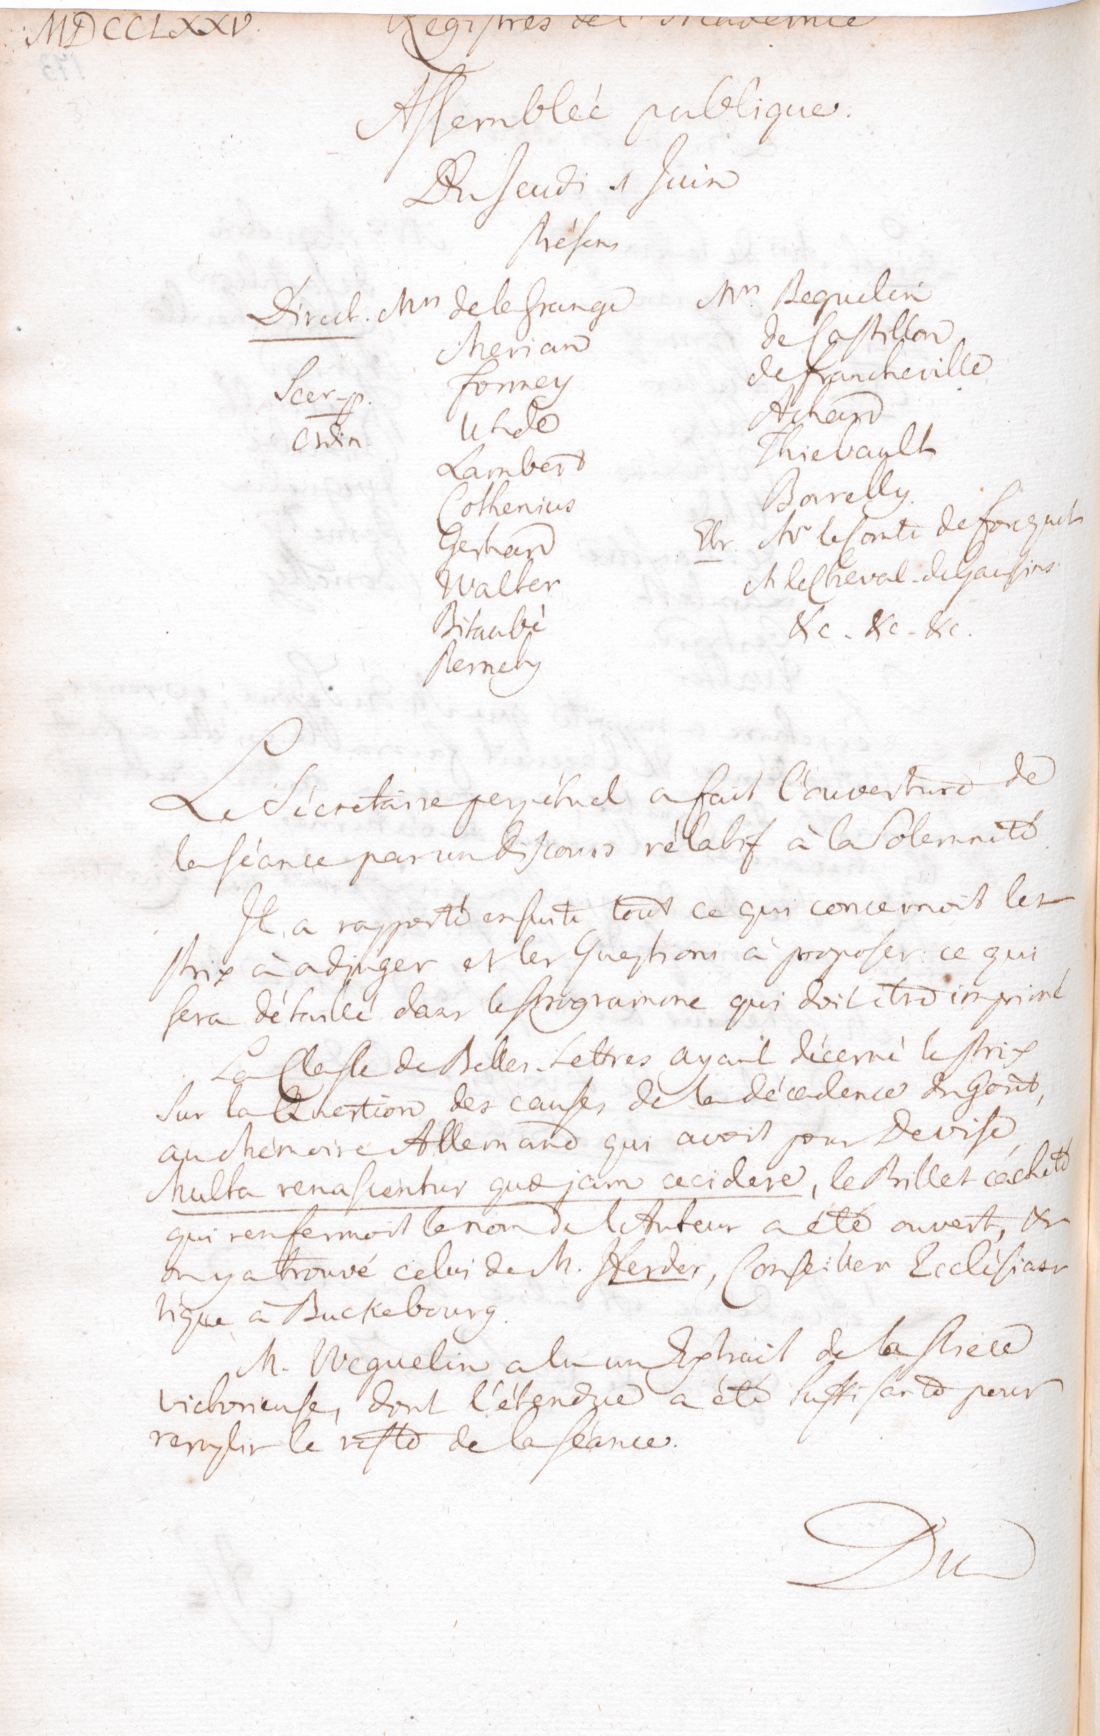 MDCCLXXV.
Registres de l'Academie
Assembleé publique.
Du Jeudi 1 Juin
Présens
Direct. Mrs de la Grange
Merian
Secr. p. Formey
Ordin. Uhde
Lambert
Cothenius
Gerhard
Walter
Bitaubé
Pernety
Mrs Beguelin
de Castillon
de Francheville
Achard
Thiebault
Borrelly.
Etr. Mr le Comte de
M le Cheval. de
&c. &c. &c.
Le Sécretaire perpétuel a fait l'ouverture de
la séance par un discours rélatif à la Solemnité.
Il a rapporté ensuite tout ce qui concernoit les
Prix à adjuger et les Questions à proposer: ce qui
sera détaillé dans le Programme qui doit être imprimé
La Classe de Belles-Lettres ayant décerné le Prix
sur la Question des causes de la décadence du Goût,
au Mémoire Allemand qui avoit pour Devise
Multa renascentur quæ jam cecidere, le Billet cacheté
qui renfermoit le nom de l'Auteur a été ouvert, &
on y a trouvé celui de M. Herder, Conseiller Ecclésias-
tique à Buckebourg.
M. Weguelin a lu un Extrait de la Piece
victorieuse, dont l'étendue a été suffisante pour
remplir le reste de la séance.
Du